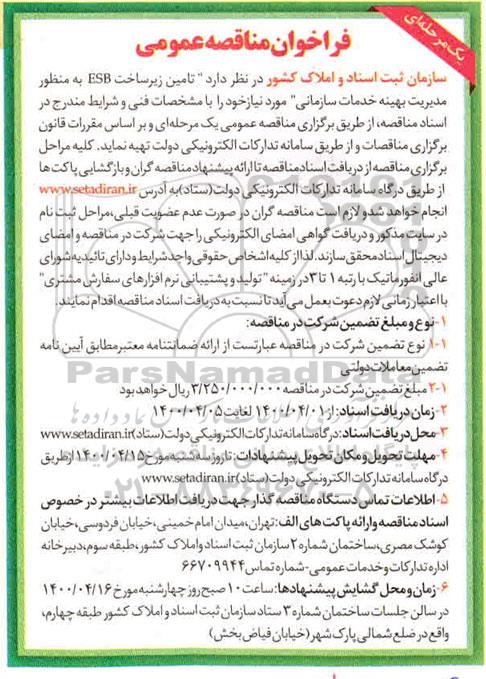 یک مرحله‌ای
فراخوان مناقصه عمومی
سازمان ثبت اسناد و املاک کشور در نظر دارد " تامین زیرساخت ESB به منظور
مدیریت بهینه خدمات سازمانی" مورد نیاز خود را با مشخصات فنی و شرایط مندرج در
اسناد مناقصه، از طریق برگزاری مناقصه عمومی یک مرحله‌ای و بر اساس مقررات قانون
برگزاری مناقصات و از طریق سامانه تدارکات الکترونیکی دولت تهیه نماید. کلیه مراحل
برگزاری مناقصه از دریافت اسناد مناقصه تا ارائه پیشنهاد مناقصه گران و بازگشایی پاکت ها
از طریق درگاه سامانه تدارکات الکترونیکی دولت(ستاد) به آدرس www.setadiran.ir
انجام خواهد شد و لازم است مناقصه گران در صورت عدم عضویت قبلی، مراحل ثبت نام
در سایت مذکور و دریافت گواهی امضای الکترونیکی را جهت شرکت در مناقصه و امضای
دیجیتال اسناد محقق سازند. لذا از کلیه اشخاص حقوقی واجد شرایط و دارای تائیدیه شورای
عالی انفورماتیک با رتبه ۱ تا ۳ در زمینه "تولید و پشتیبانی نرم افزارهای سفارش مشتری"
با اعتبار زمانی لازم دعوت بعمل می آید تا نسبت به دریافت اسناد مناقصه اقدام نمایند.
۱-نوع و مبلغ تضمین شرکت در مناقصه:
۱-۱ نوع تضمین شرکت در مناقصه عبارتست از ارائه ضمانتنامه معتبر مطابق آیین نامه
تضمین معاملات دولتی
۱-۲ مبلغ تضمین شرکت در مناقصه ۳/۲۵۰/۰۰۰/۰۰۰ ریال خواهد بود
۲-زمان دریافت اسناد: از ۱۴۰۰/۰۴/۰۱ لغایت ۱۴۰۰/۰۴/۰۵
۳-محل دریافت اسناد: درگاه سامانه تدارکات الکترونیکی دولت(ستاد) www.setadiran.ir
۴-مهلت تحویل و مکان تحویل پیشنهادات: تا روز سه شنبه مورخ ۱۴۰۰/۰۴/۱۵ از طریق
درگاه سامانه تدارکات الکترونیکی دولت(ستاد) www.setadiran.ir
۵-اطلاعات تماس دستگاه مناقصه گذار جهت دریافت اطلاعات بیشتر در خصوص
اسناد مناقصه و ارائه پاکت های الف: تهران، میدان امام خمینی، خیابان فردوسی، خیابان
کوشک مصری، ساختمان شماره ۲ سازمان ثبت اسناد و املاک کشور، طبقه سوم، دبیرخانه
اداره تدارکات و خدمات عمومی-شماره تماس ۶۶۷۰۹۹۴۴
۶-زمان و محل گشایش پیشنهادها: ساعت ۱۰ صبح روز چهارشنبه مورخ ۱۴۰۰/۰۴/۱۶
در سالن جلسات ساختمان شماره ۳ ستاد سازمان ثبت اسناد و املاک کشور طبقه چهارم،
واقع در ضلع شمالی پارک شهر (خیابان فیاض بخش)
ParsNamadData